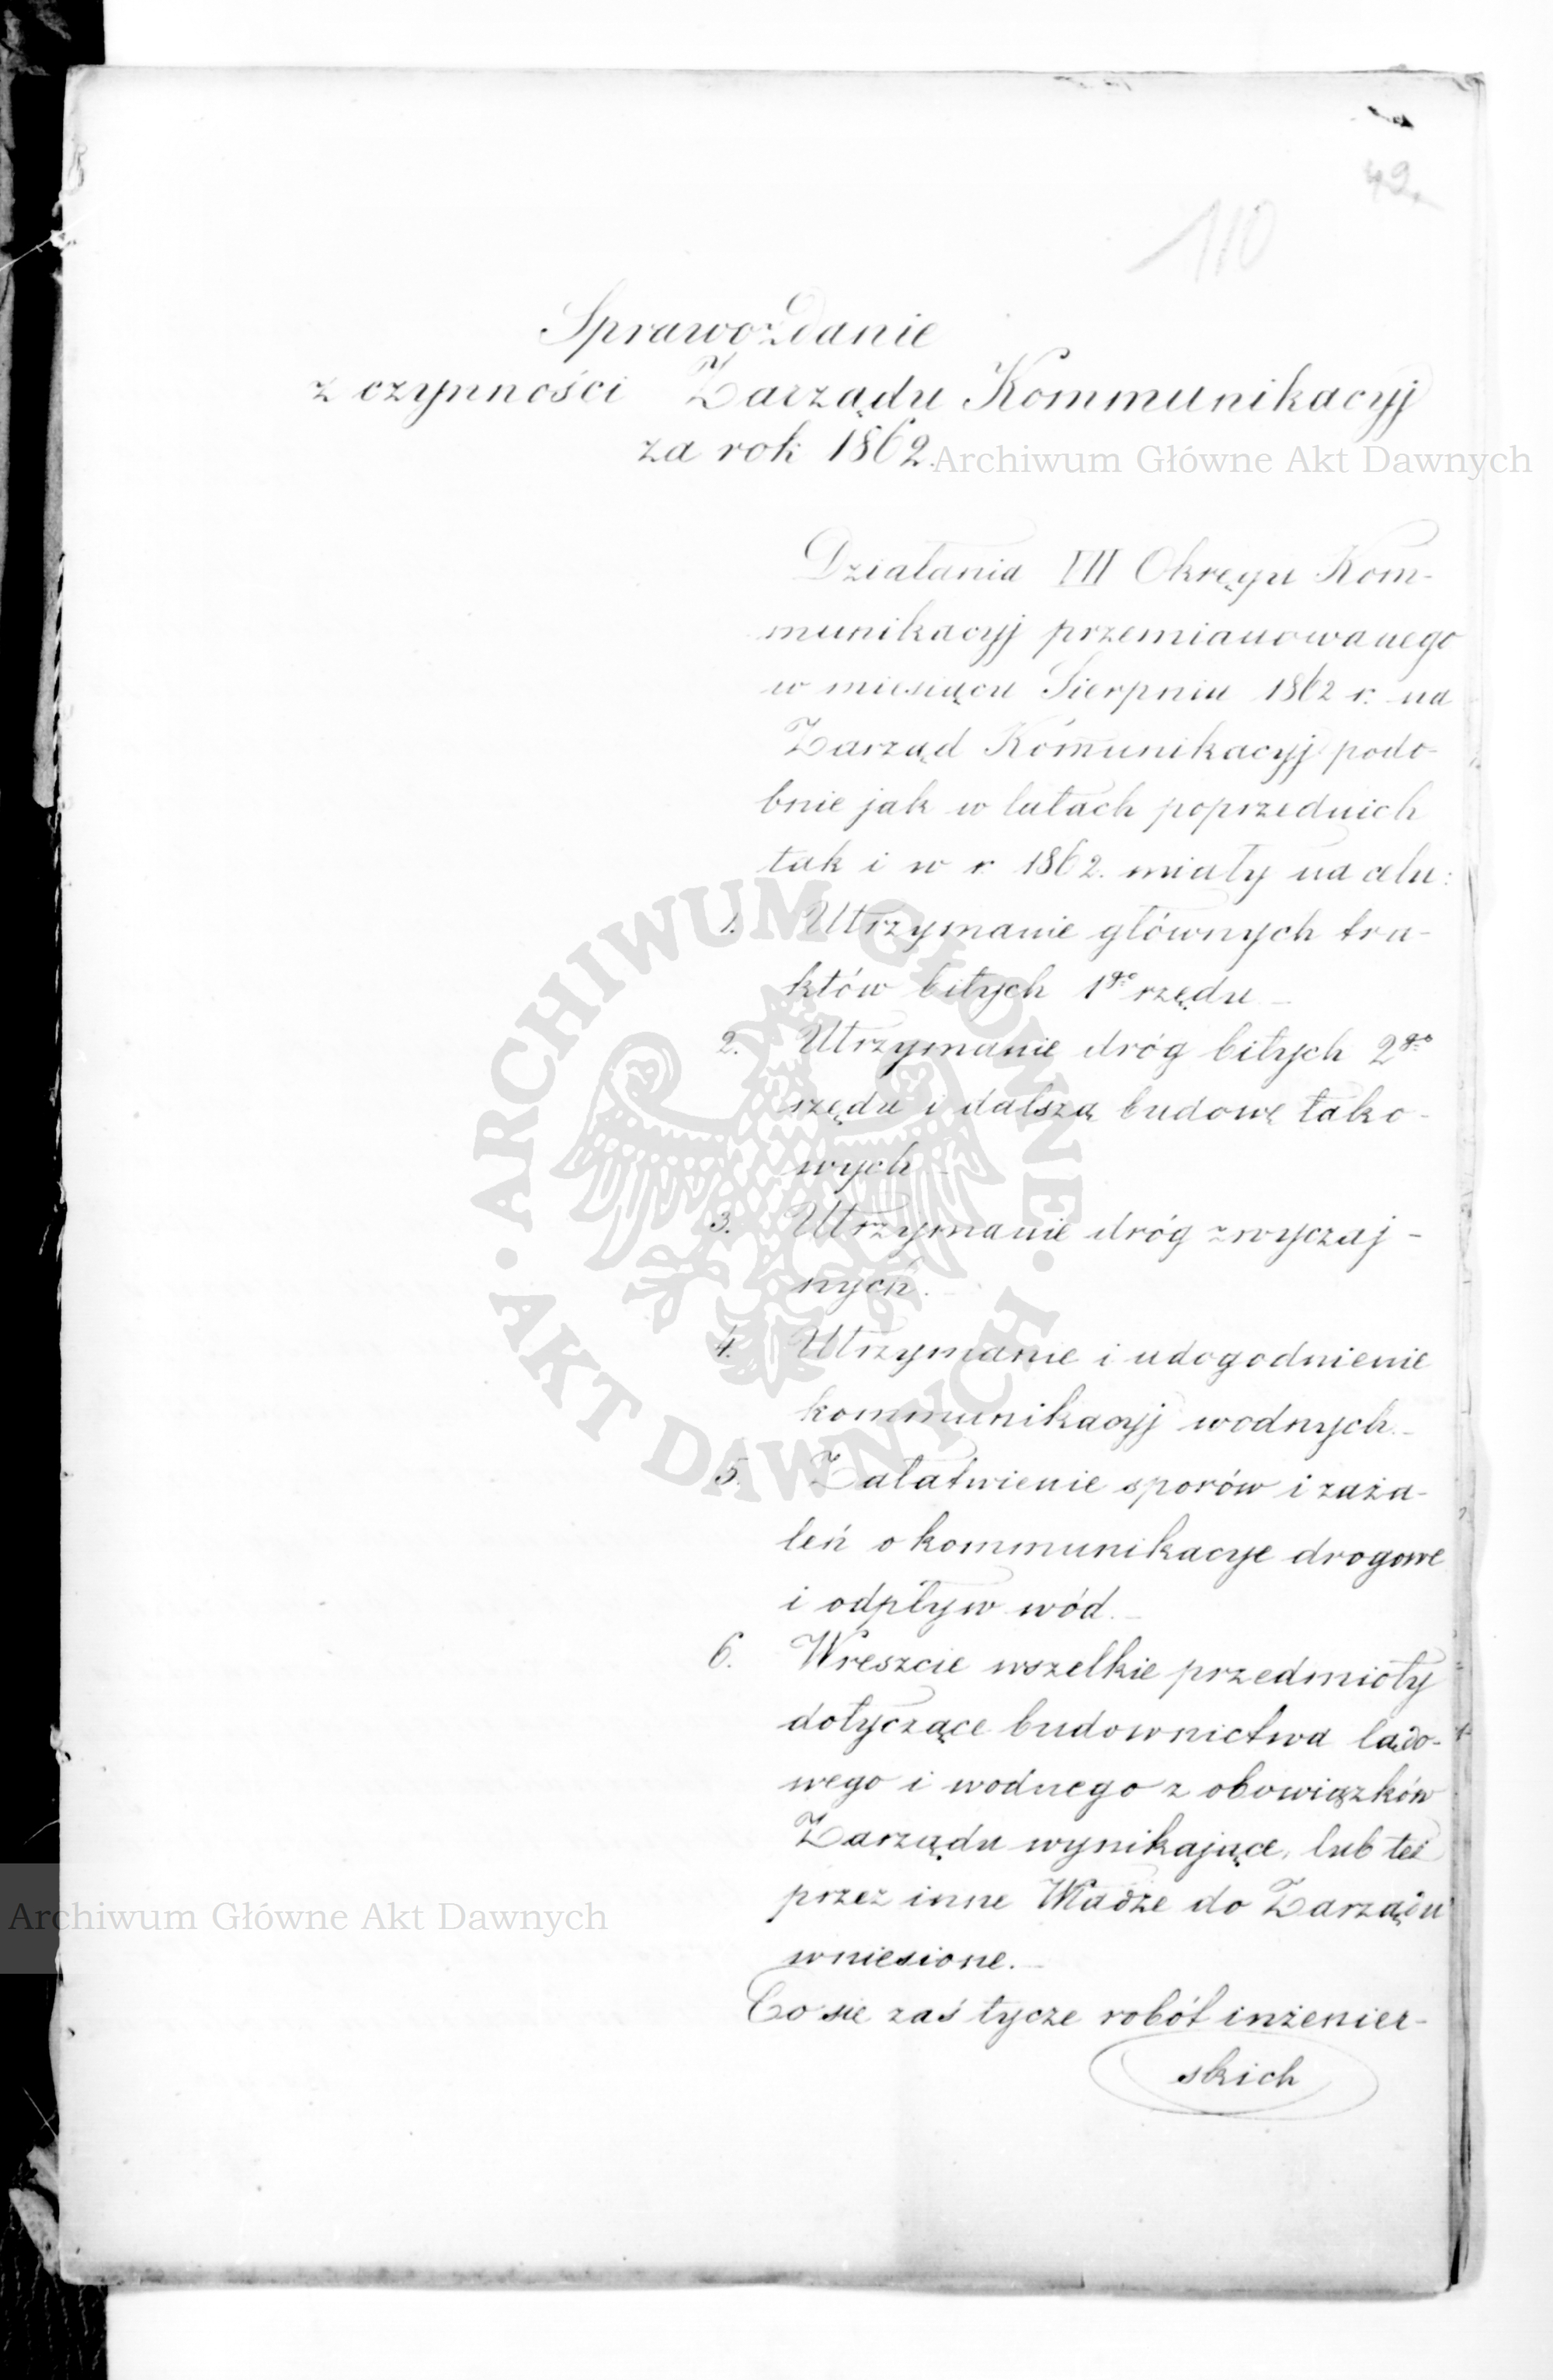 49.
110
Sprawozdanie
z czynności Zarządu Kommunikacyj
za rok 1862.
Archiwum Główne Akt Dawnych
Działania III Okręgu Kom-
munikacyj przemianowanego
w miesiącu Sierpniu 1862 r. na
Zarząd Kom̄unikacyj podo-
bnie jak w latach poprzednich
tak i w r. 1862. miały na celu:
1. Utrzymanie głównych tra-
któw bitych 1go rzędu –
2. Utrzymanie dróg bitych 2go
rzędu i dalszą budowę tako-
wych –
3. Utrzymanie dróg zwyczaj-
nych. –
4. Utrzymanie i udogodnienie
kommunikacyj wodnych. –
5. Załatwienie sporów i zaża-
leń o kommunikacye drogowe
i odpływ wód. –
6. Wreszcie wszelkie przedmioty
dotyczące budownictwa lądo-
wego i wodnego z obowiązków
Zarządu wynikające, lub też
przez inne Władze do Zarządu
wniesione. –
Co się zaś tycze robót inżenier-
skich
ARCHIWUM GŁÓWNE • AKT DAWNYCH •
Archiwum Główne Akt Dawnych